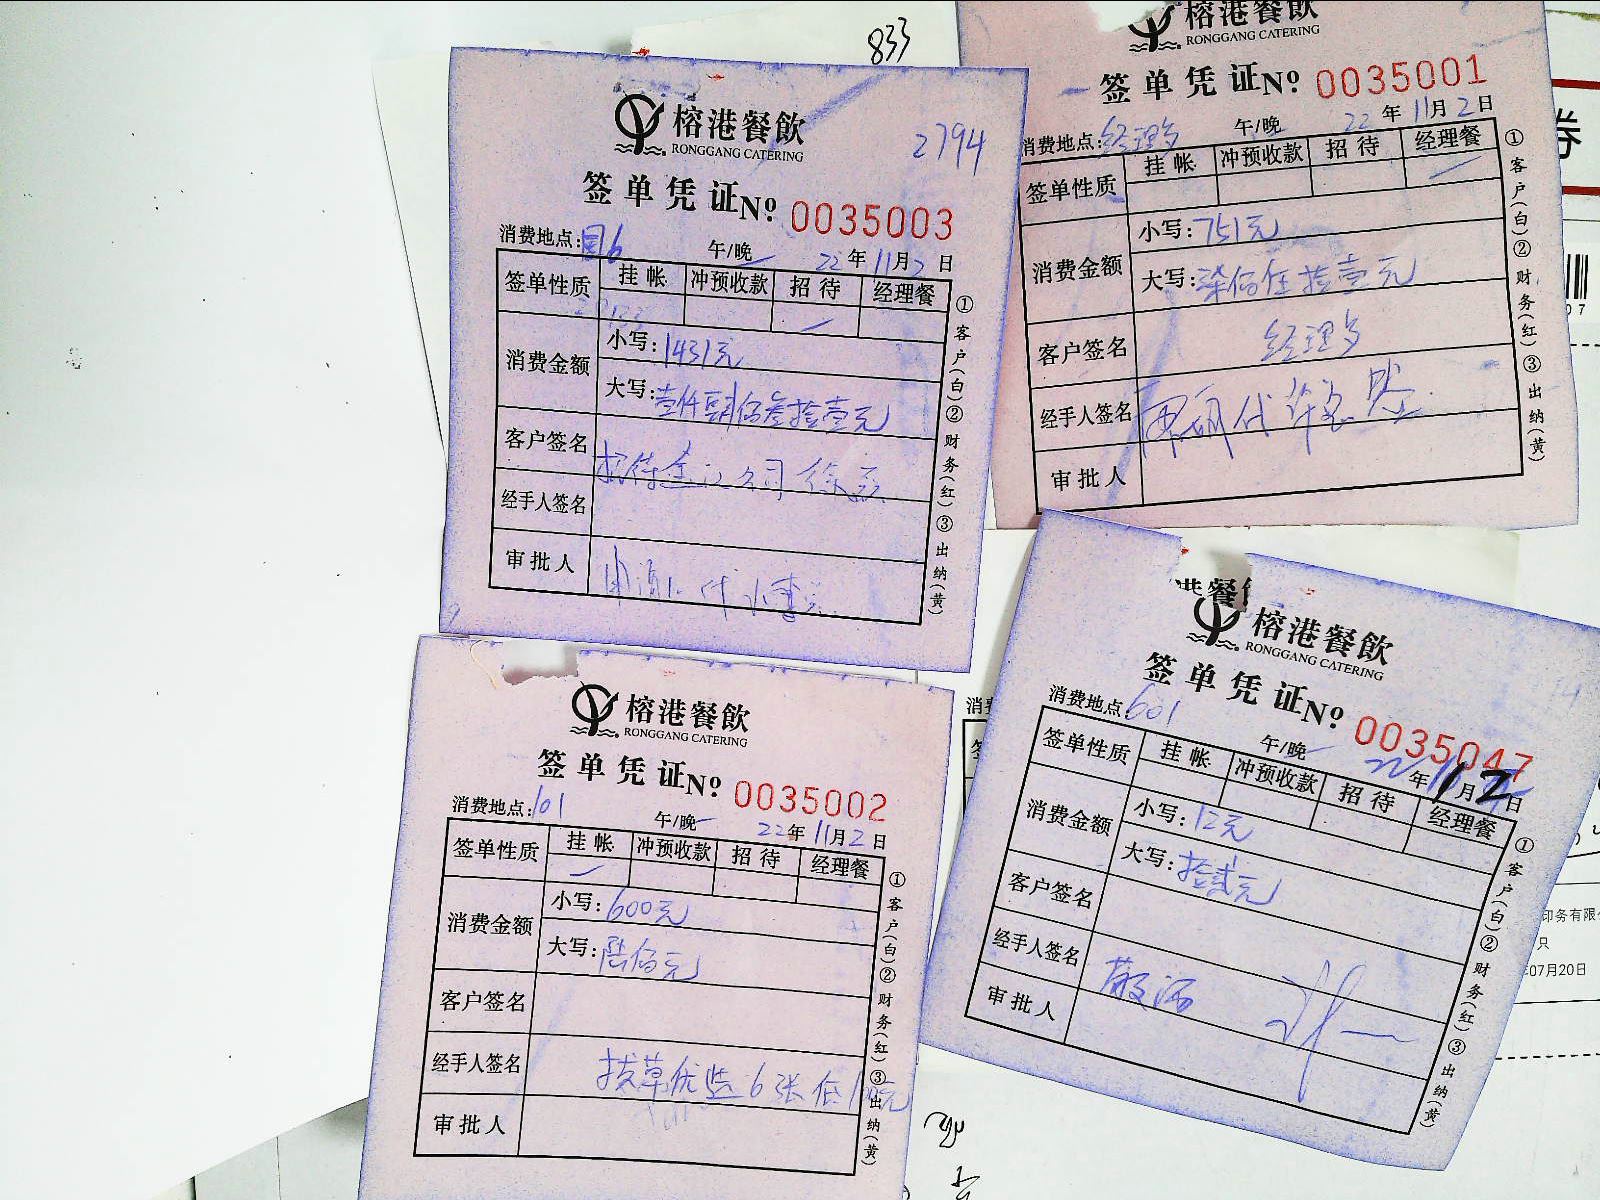 833
榕港餐飲
RONGGANG CATERING
2794
签单凭证No. 0035003
消费地点:国6 午/晚 22年11月2日
签单性质 挂帐 冲预收款 招待 经理餐
消费金额 小写:1431元
大写:壹仟肆佰叁拾壹元
客户签名
经手人签名
审批人
①客户(白)②财务(红)③出纳(黄)
榕港餐飲
RONGGANG CATERING
签单凭证No. 0035001
消费地点:经理 午/晚 22年11月2日
签单性质 挂帐 冲预收款 招待 经理餐
消费金额 小写:751元
大写:柒佰伍拾壹元
客户签名 经理
经手人签名
审批人
①客户(白)②财务(红)③出纳(黄)
榕港餐飲
RONGGANG CATERING
签单凭证No. 0035002
消费地点:101 午/晚 22年11月2日
签单性质 挂帐 冲预收款 招待 经理餐
消费金额 小写:600元
大写:陆佰元
客户签名
经手人签名 拔草优选6张低100元
审批人
①客户(白)②财务(红)③出纳(黄)
港餐
榕港餐飲
RONGGANG CATERING
签单凭证No. 0035047
消费地点:601 午/晚 22年11月2日
签单性质 挂帐 冲预收款 招待 经理餐
消费金额 小写:12元
大写:拾贰元
客户签名
经手人签名 散酒
审批人
①客户(白)②财务(红)③出纳(黄)
券
07
印务有限
只
07月20日